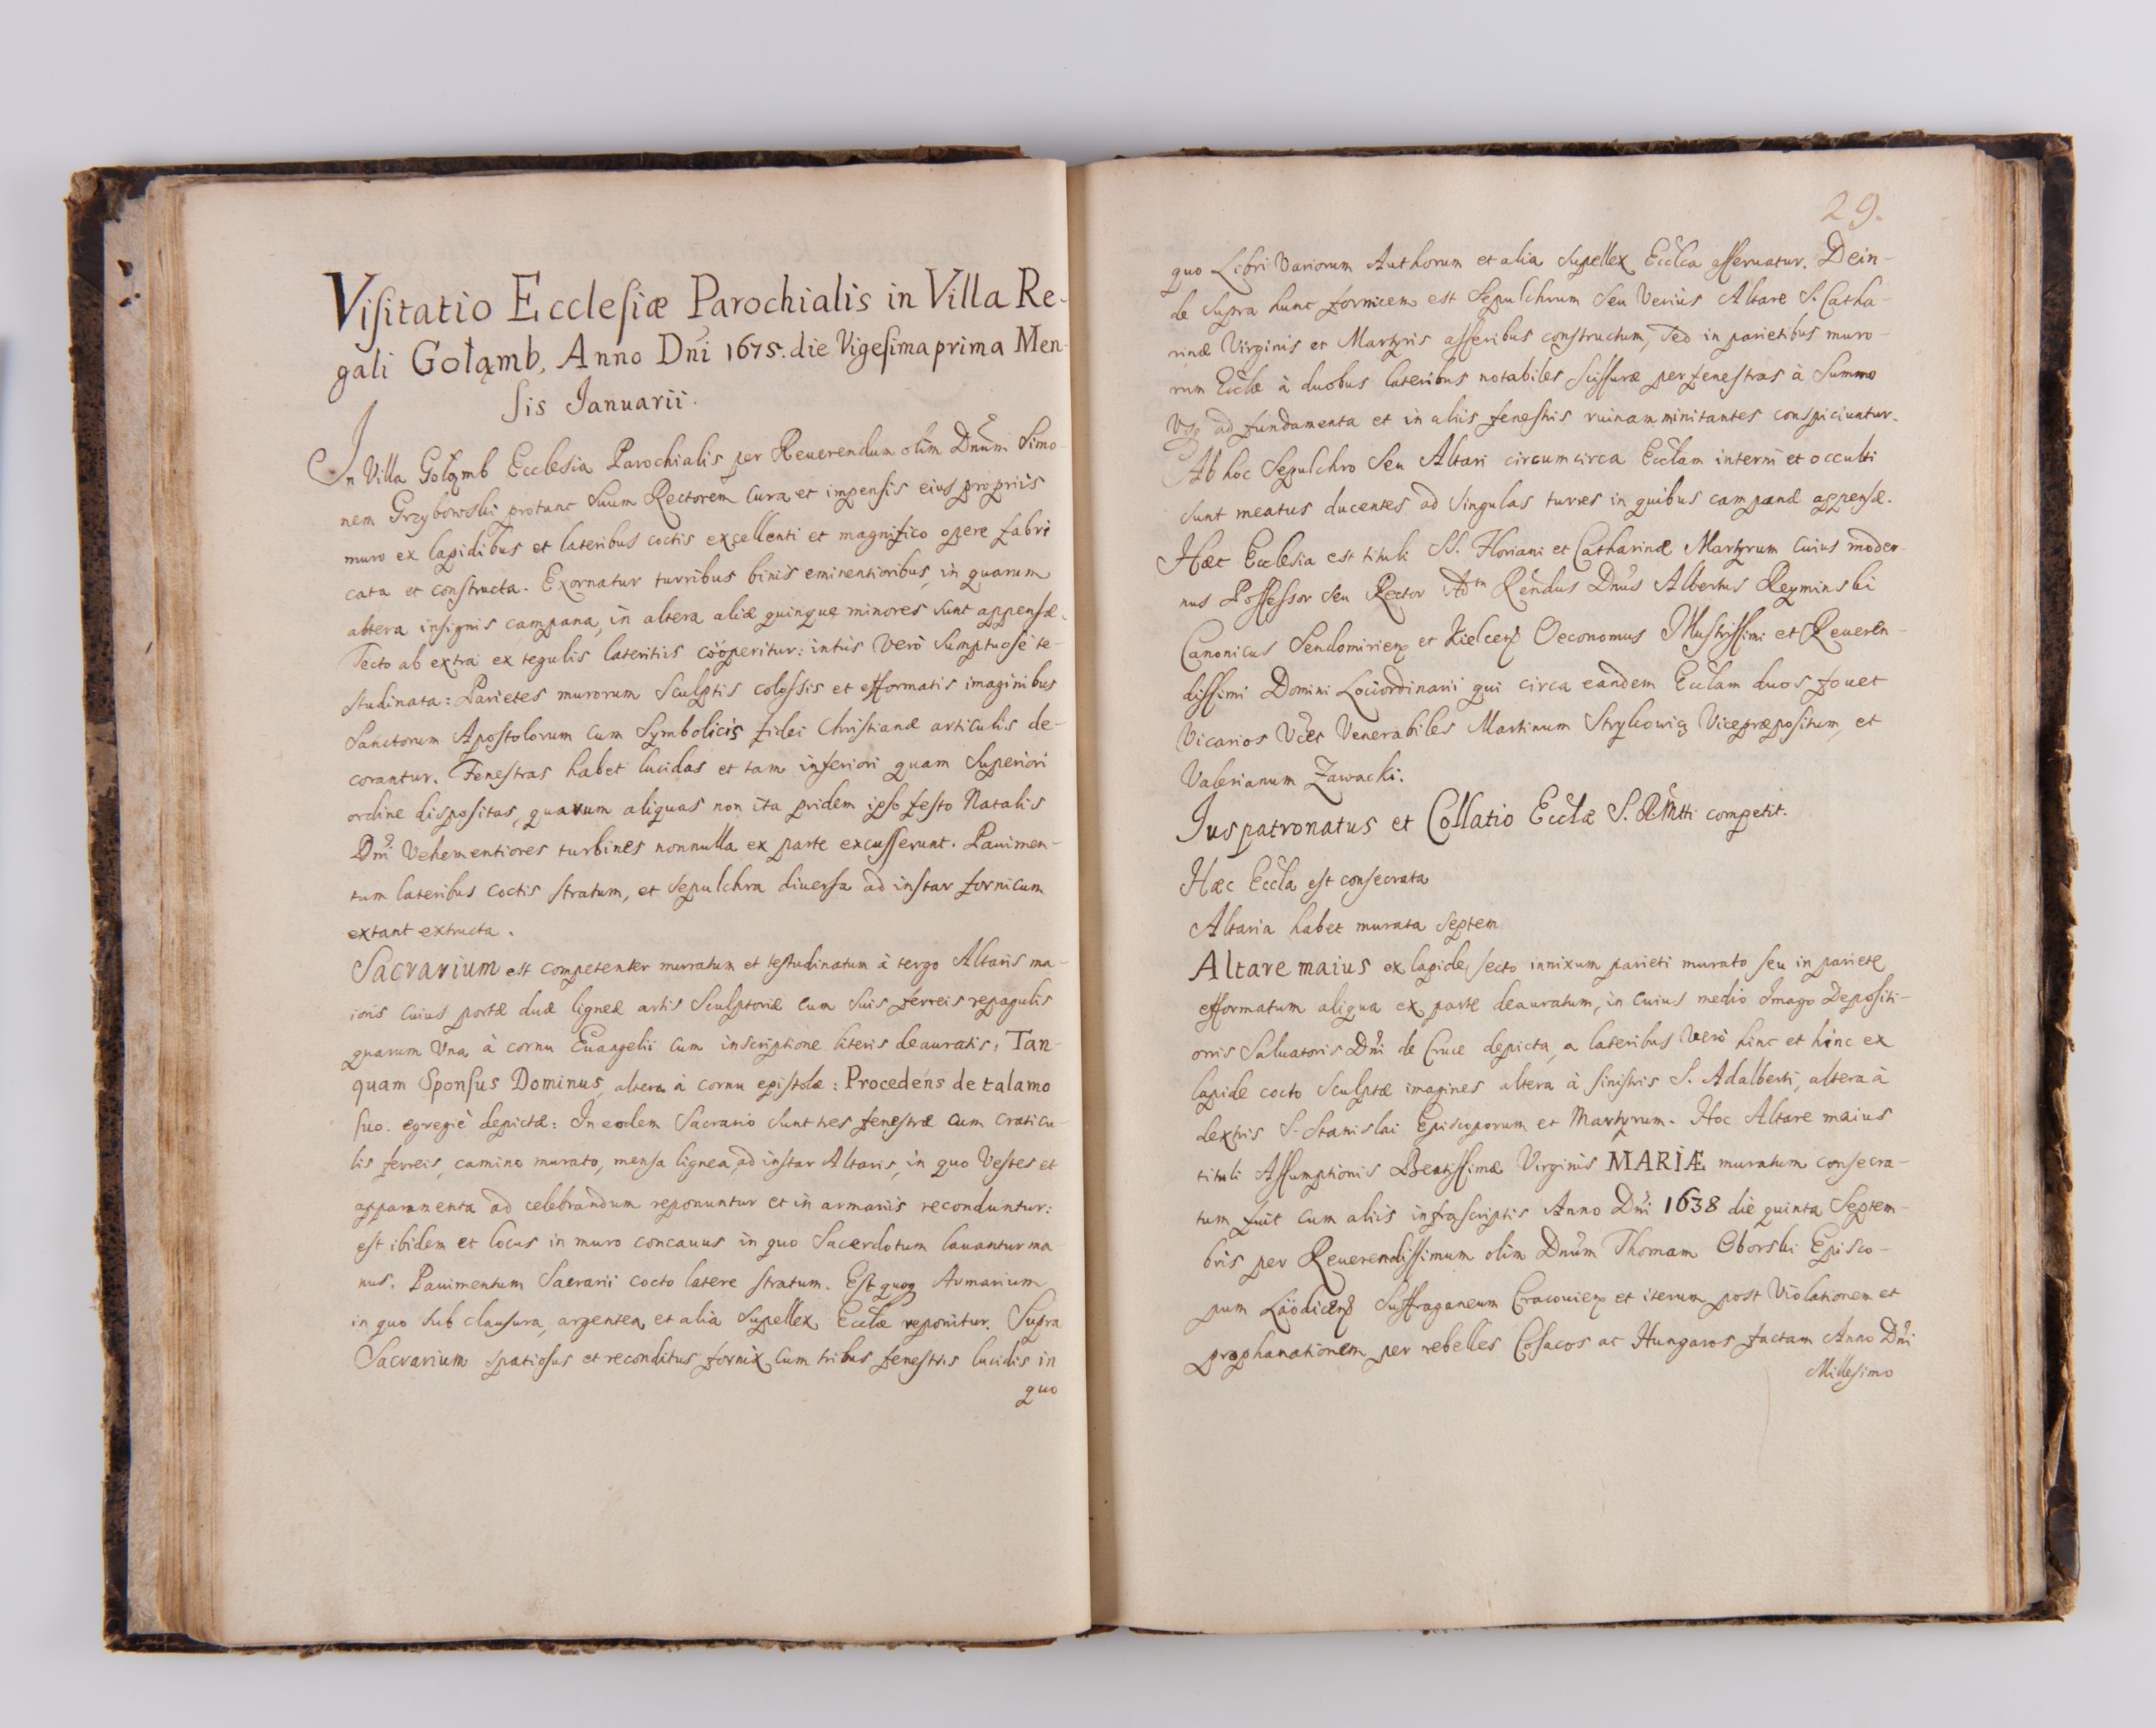 Visitatio Ecclesiæ Parochialis in Villa Re-
gali Gołąmb, Anno Dni 1675. die Vigesima prima Men-
sis Ianuarii.
In Villa Gołąmb Ecclesia Parochialis per Reuerendum olim Dnum Simo-
nem Grzybowski protunc Suum Rectorem cura et impensis eius propriis
muro ex lapidibus et lateribus coctis excellenti et magnifico opere fabri
cata et constructa. Exornatur turribus binis eminentioribus, in quarum
altera insignis campana, in altera aliæ quinque minores sunt appensæ.
Tecto ab extra ex tegulis lateritiis cooperitur: intus verò Sumptuosè te-
studinata: Parietes murorum Sculptis colossis et efformatis imaginibus
Sanctorum Apostolorum cum Symbolicis fidei Christianæ articulis de-
corantur. Fenestras habet lucidas et tam inferiori quam Superiori
ordine dispositas, quarum aliquas non ita pridem ipso festo Natalis
Dni Vehementiores turbines nonnulla ex parte excusserunt. Pauimen-
tum lateribus coctis stratum, et sepulchra diuersa ad instar fornicum
extant extructa.
Sacrarium est competenter murratum et testudinatum à tergo Altaris ma-
ioris cuius portæ duæ ligneæ artis Sculptoriæ cum suis ferreis repagulis
quarum Una à cornu Euangelii cum inscriptione literis deauratis: Tan-
quam Sponsus Dominus, altera à cornu epistolæ: Procedens de talamo
suo. egregiè depictæ: In eodem Sacrario Sunt tres fenestræ cum craticu-
lis ferreis, camino murato, mensa lignea, ad instar Altaris, in quo Vestes et
apparamenta ad celebrandum reponuntur et in armariis reconduntur:
est ibidem et locus in muro concauus in quo Sacerdotum lauantur ma-
nus. Pauimentum Sacrarii cocto latere stratum. Est quoq Armarium
in quo sub clausura, argentea, et alia Supellex Ecclæ reponitur. Supra
Sacrarium spatiosus et reconditus fornix cum tribus fenestris lucidis in
quo
29.
quo Libri Variorum Authorum et alia Supellex Ecclca asseruatur. Dein-
de Supra hunc fornicem est Sepulchrum Seu Verius Altare S. Catha-
rinæ Virginis et Martyris asseribus constructum, Sed in parietibus muro-
rum Ecclæ à duobus lateribus notabiles Scissuræ per fenestras à Summo
Vsq ad fundamenta et in aliis fenestris ruinam minitantes conspiciuntur.
Ab hoc Sepulchro Seu Altari circumcirca Ecclam interni et occulti
sunt meatus ducentes ad singulas turres in quibus campanæ appensæ.
Hæc Ecclesia est tituli SS. Floriani et Catharinæ Martyrum cuius moder-
nus Possessor seu Rector Adm Rendus Dnus Albertus Reyminski
Canonicus Sendomirien et Kielcen Oeconomus Illustrissimi et Reueren-
dissimi Domini Lociordinarii qui circa eandem Ecclam duos fouet
Vicarios Vdct Venerabiles Martinum Strykowicz Vicepræpositum, et
Valerianum Zawacki.
Iuspatronatus et Collatio Ecclæ S. R. Mtti competit.
Hæc Eccla est consecrata
Altaria habet murata septem
Altare maius ex lapide secto innixum parieti murato seu in pariete
efformatum aliqua ex parte deauratum, in cuius medio Imago Depositi-
onis Saluatoris Dni de Cruce depicta, a lateribus verò hinc et hinc ex
lapide cocto Sculptæ imagines altera à sinistris S. Adalberti, altera à
dextris S. Stanislai Episcoporum et Martyrum. Hoc Altare maius
tituli Assumptionis Beatissimæ Virginis MARIÆ muratum consecra-
tum fuit cum aliis infrascriptis Anno Dni 1638 die quinta Septem-
bris per Reuerendissimum olim Dnum Thomam Oborski Episco-
pum Laodicen Suffraganeum Cracouien et iterum post Violationem et
prophanationem per rebelles Cosacos ac Hungaros factam Anno Dni
Millesimo